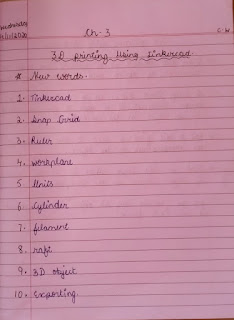 Wednesday
Ch-3
C.W
3D printing Using Tinkercad
* New words.
1. Tinkercad
2. Snap Grid
3. Ruler
4. workplane
5 Units
6 Cylinder
7. filament
8. raft
9. 3D object
10. Exporting.